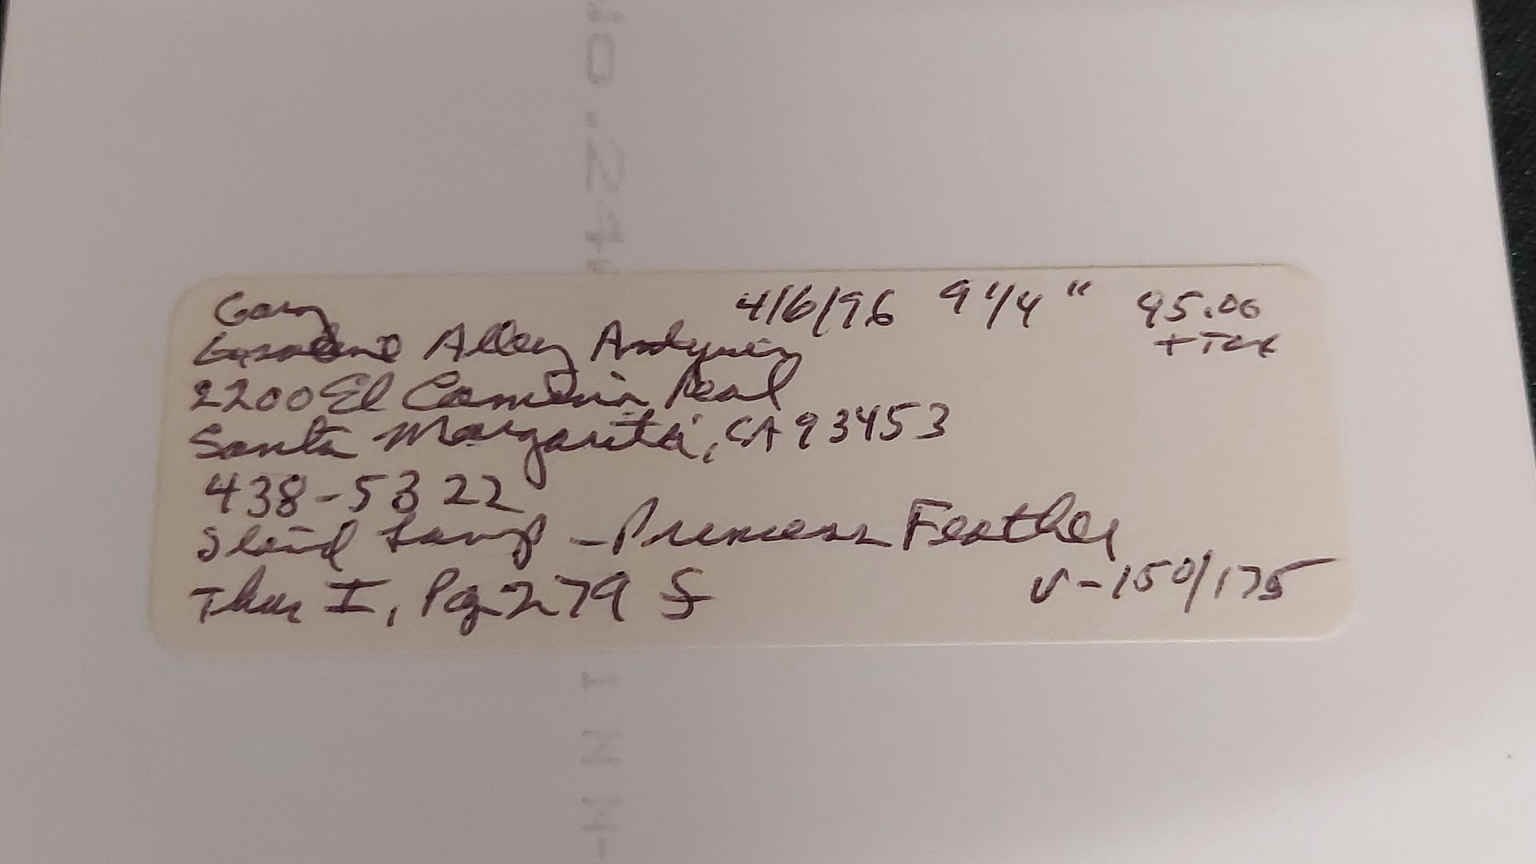 Gary 4/6/96 9 1/4" 95.00
+Tax
Gasoline Alley Antques
2200 El Camino Real
Santa Margarita, CA 93453
438-5322
Stand Lamp - Princess Feather
Thur I, Pg 279 f V-150/175